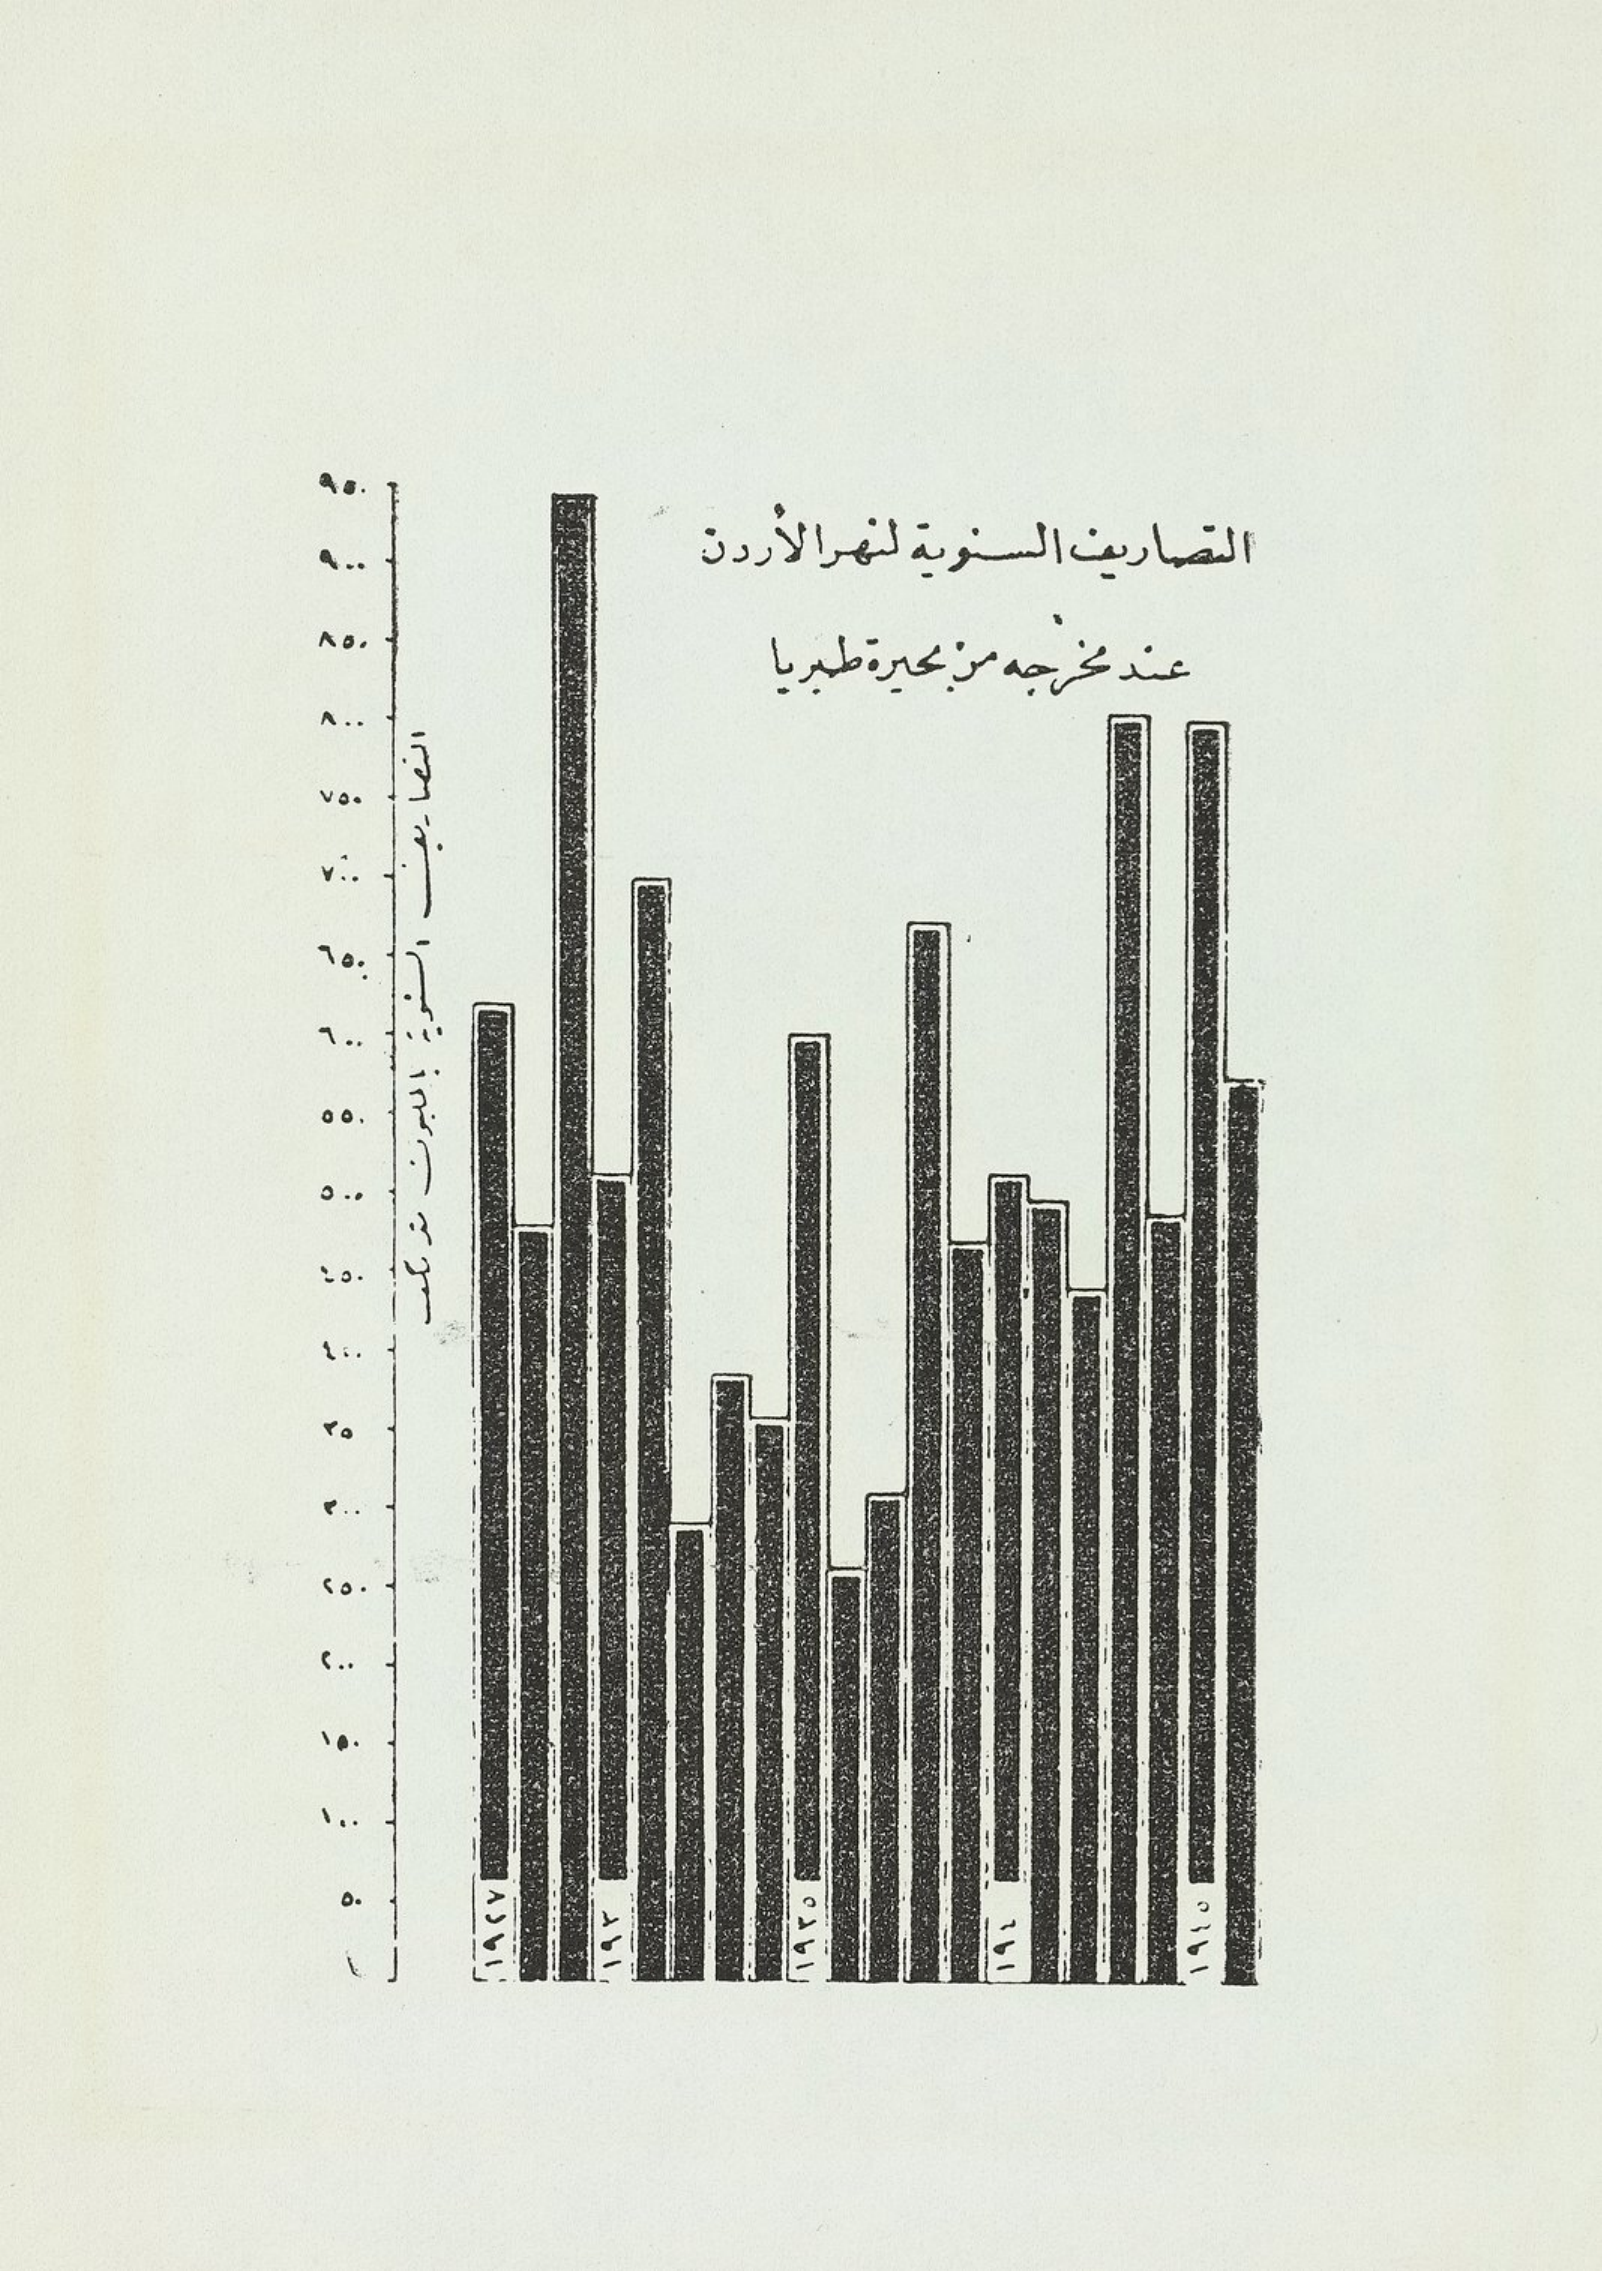 التصاريف السنوية لنهر الأردن
عند مخرجه من بحيرة طبريا
التصاريف السنوية بالمليون متر مكعب
٩٥٠
٩٠٠
٨٥٠
٨٠٠
٧٥٠
٧٠٠
٦٥٠
٦٠٠
٥٥٠
٥٠٠
٤٥٠
٤٠٠
٣٥
٣٠٠
٢٥٠
٢٠٠
١٥٠
١٠٠
٥٠
١٩٢٧
١٩٣
١٩٣٥
١٩٤
١٩٤٥